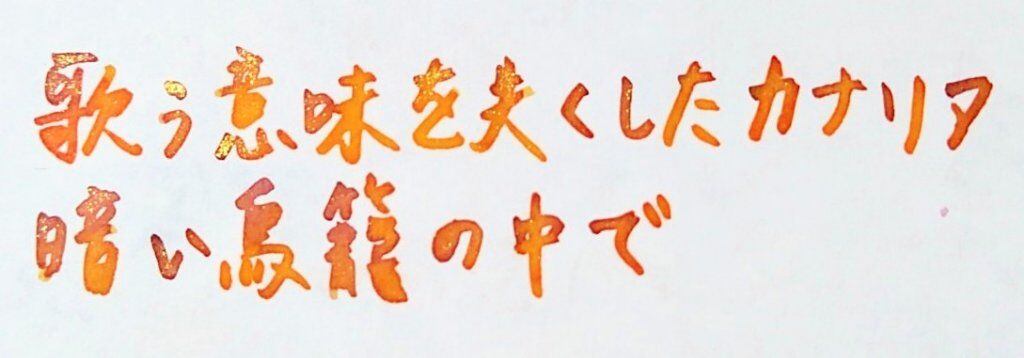 歌う意味を失くしたカナリア
暗い鳥籠の中で